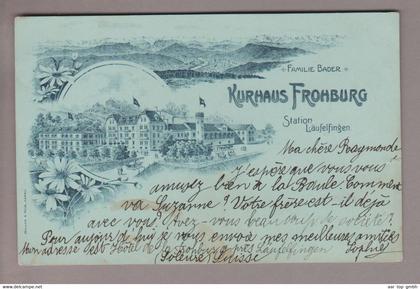 FAMILIE BADER
KURHAUS FROHBURG
Station
Läufelfingen
Ma chère Raymonde
J'espère que vous vous
amusez bien à la Baule. Comment
va Suzanne? Votre frère est-il déjà
avec vous? Avez-vous beaucoup de
Pour aujourd'hui je vous envoie mes meilleures amitiés
Mon adresse est Hôtel de Frohburg près Laufelfingen Sophie
Soleure Suisse